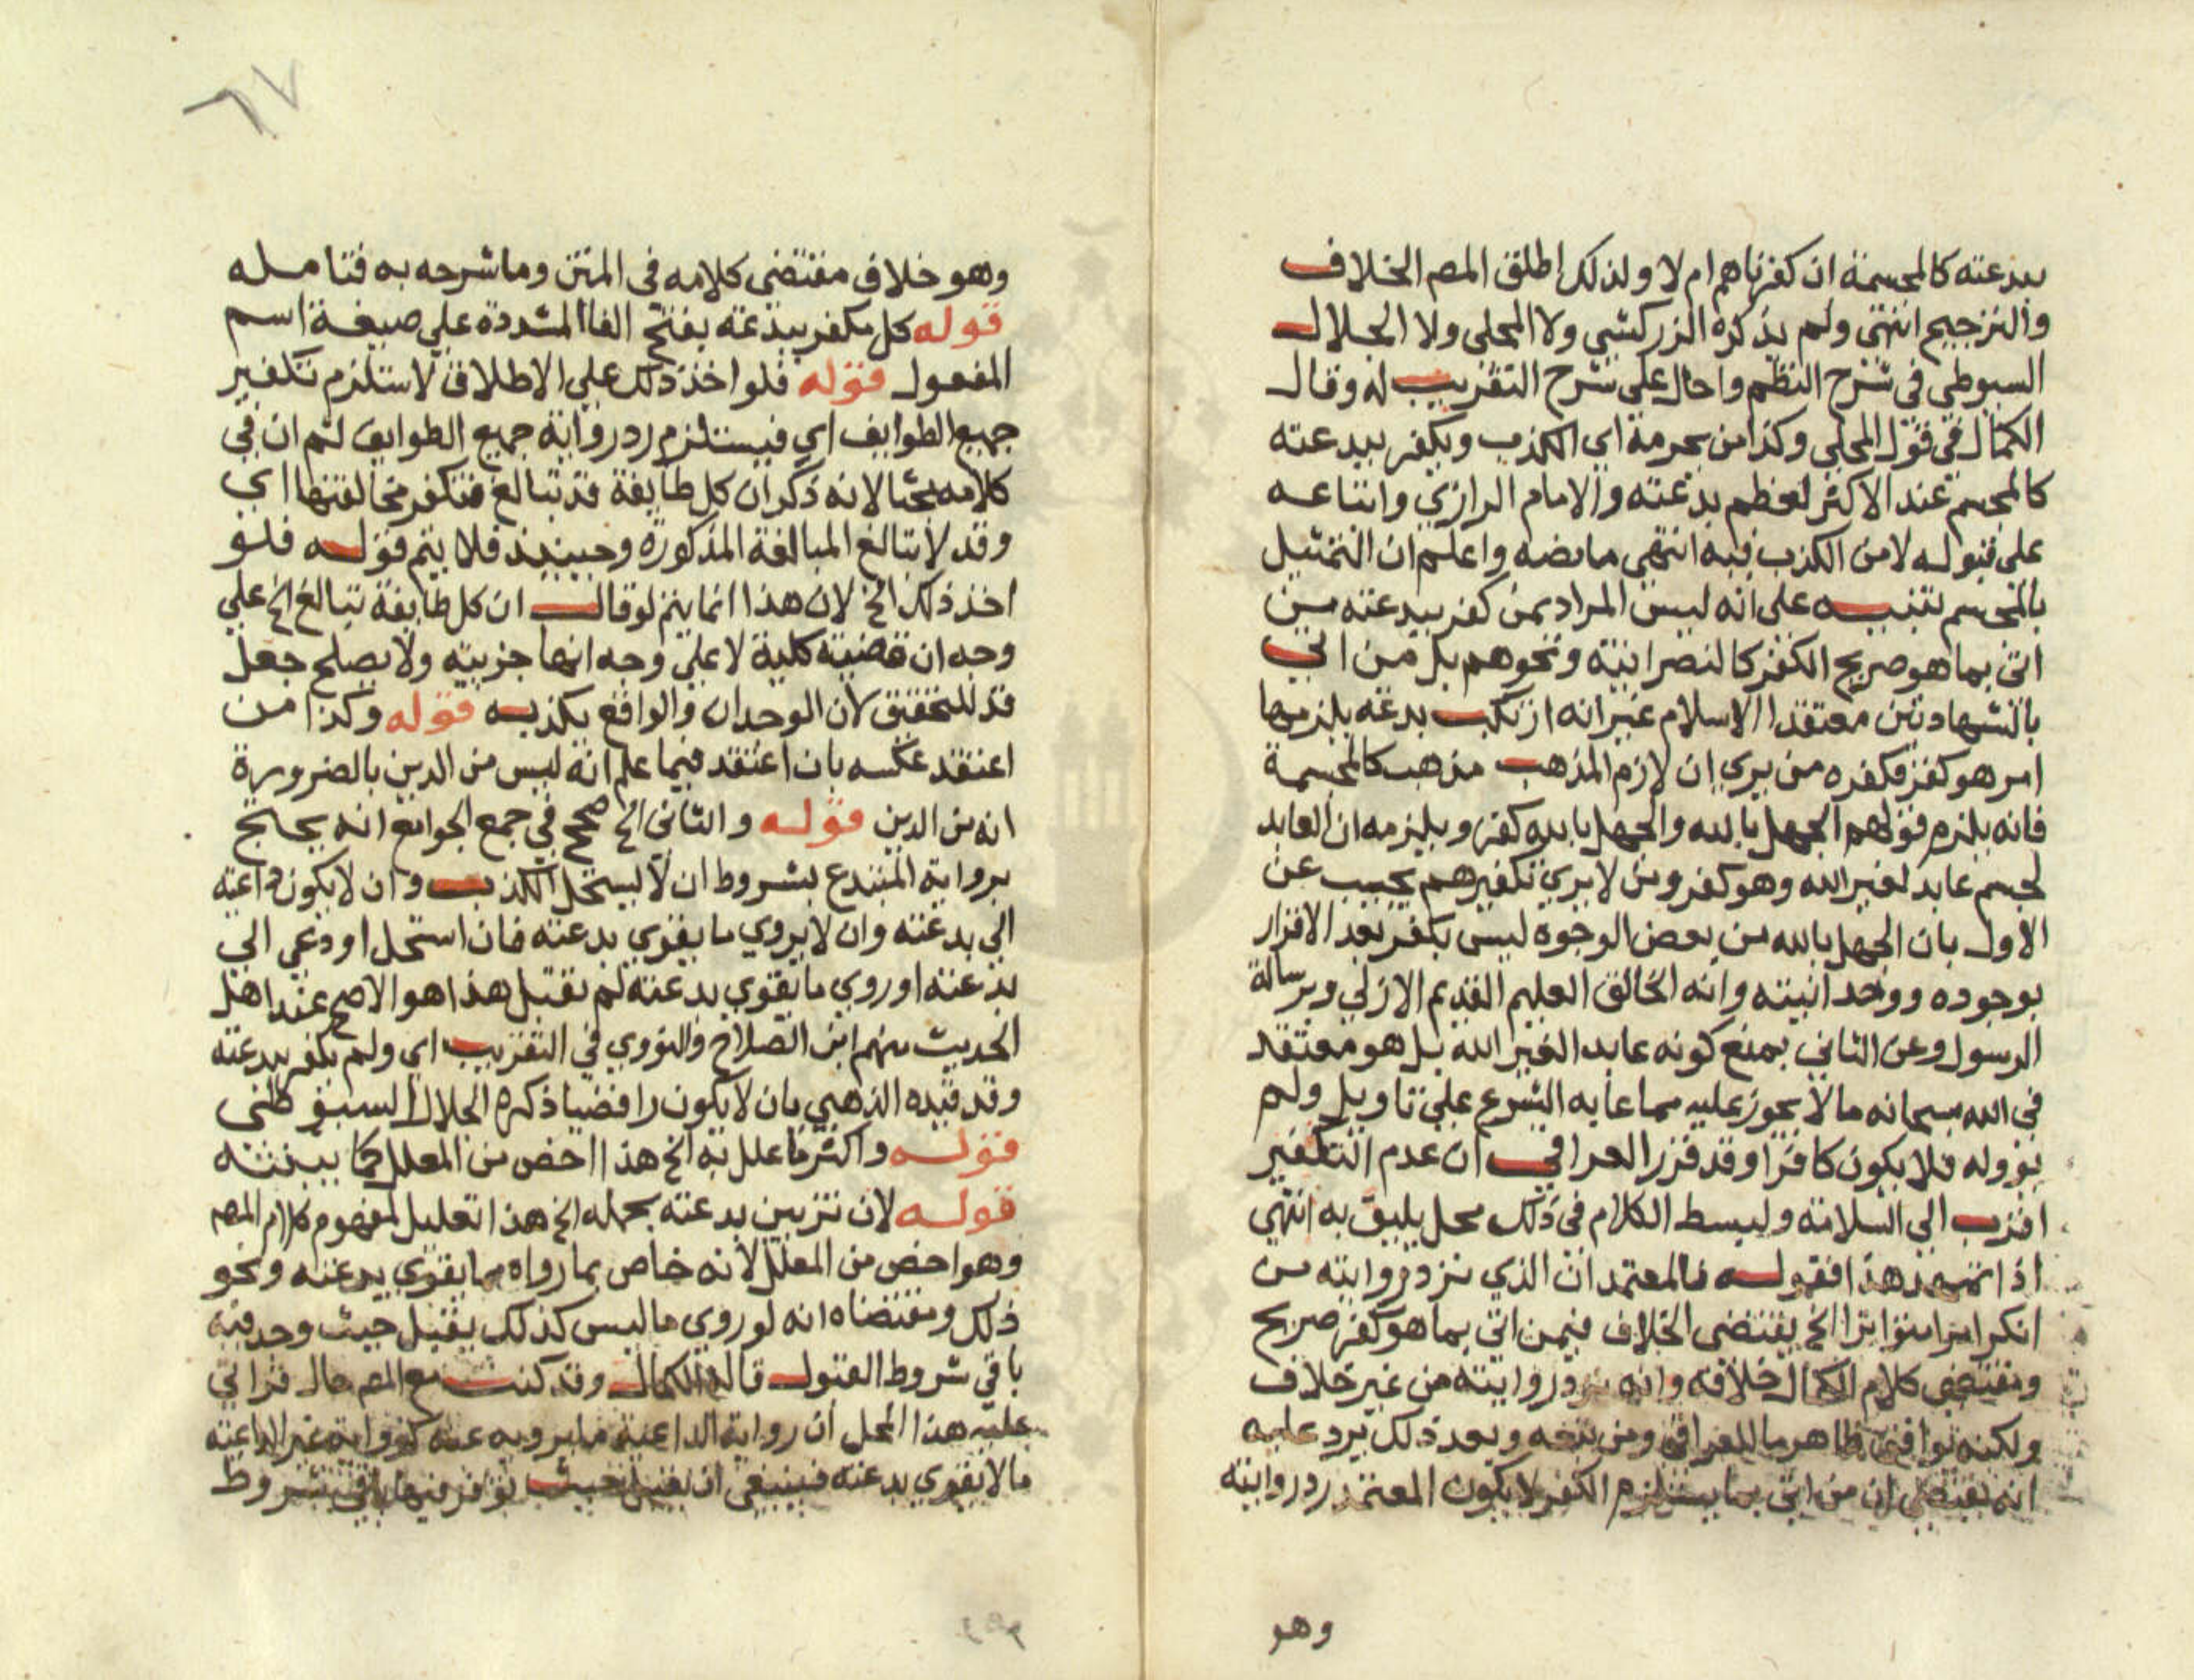 ببدعته كالمجسمة ان كفرناهم ام لا ولذلك اطلق المصـ الخلاف
والترجيح انتهى ولم يذكره الزركشي ولا المحلى ولا الجلال
السيوطي في شرح النظم واحال على شرح التقريب له وقال
الكمال في قول المحلي وكذا من يحرمه اي الكذب ويكفر ببدعته
كالمجسم عند الاكثر لعظم بدعته والامام الرازي واتباعه
على قبوله لامن الكذب فيه انتهى ما نصه واعلم ان التمثيل
بالمجسم تنبيه على انه ليس المراد بمن كفر ببدعته من
اتى بما هو صريح الكفر كالنصرانية ونحوهم بل من اتي
بالشهادتين معتقدا الاسلام غير انه ارتكب بدعة يلزمها
امر هو كفر فكفره من يري ان لازم المذهب مذهب كالمجسمة
فانه يلزم قولهم الجهل بالله والجهل بالله كفر ويلزمه ان العابد
لجسم عابد لغير الله وهو كفر ومن لا يري تكفيرهم يجيب عن
الاول بان الجهل بالله من بعض الوجوه ليس بكفر بعد الاقرار
بوجوده ووحدانيته وانه الخالق العليم القديم الازلي وبرسالة
الرسول وعن الثاني بمنع كونه عابدا لغير الله بل هو معتقد
في الله سبحانه ما لا يجوز عليه مما عابه الشرع على تاويل ولم
يؤوله فلا يكون كافرا وقد قرر العراقي ان عدم التكفير
اقرب الي السلامة ولبسط الكلام في ذلك محل يليق به انتهي
اذا تمهد هذا فقوله فالمعتمد ان الذي ترد روايته من
انكر امرا متواترا الخ يقتضى الخلاف فيمن اتى بما هو كفر صريح
ومقتضى كلام الكمال خلافه وانه ترد روايته من غير خلاف
ولكنه توافق ظاهر ما للعراقي ومن تبعه وبعد ذلك يرد عليه
انه يقتضي ان من اتى بما يستلزم الكفر لا يكون المعتمد رد روايته
وهو
٦٧
وهو خلاف مقتضى كلامه في المتن وما شرحه به فتامله
قوله كل مكفر ببدعته بفتح الفا المشددة علي صيغة اسم
المفعول قوله فلو اخذ ذلك علي الاطلاق لاستلزم تكفير
جميع الطوايف اي فيستلزم رد رواية جميع الطوايف ثم ان في
كلامه بحثا لانه ذكر ان كل طايفة قد تبالغ فتكفر مخالفتها اي
وقد لا تبالغ المبالغة المذكورة وحينئذ فلا يتم قوله فلو
اخذ ذلك الخ لان هذا انما يتم لو قال ان كل طايفة تبالغ الخ علي
وجه ان قضية كلية لا علي وجه انها جزييه ولا يصلح جعل
قد للتحقيق لان الوجدان والواقع يكذبه قوله وكذا من
اعتقد عكسه بان اعتقد فيما علم انه ليس من الدين بالضرورة
انه من الدين قوله والثانى الخ صحح في جمع الجوامع انه يحتج
برواية المبتدع بشروط ان لا يستحل الكذب وان لا يكون داعية
الي بدعته وان لا يروي ما يقوي بدعته فان استحل او دعى الي
بدعته او روي ما يقوي بدعته لم تقبل هذا هو الاصح عند اهل
الحديث منهم ابن الصلاح والنووي في التقريب اي ولم يكفر ببدعته
وقد قيده الذهبي بان لا يكون رافضيا ذكره الجلال السيوطي
قوله واكثر ما علل به الخ هذا اخص من المعلل كما بينته
قوله لان تزيين بدعته بحمله الخ هذا تعليل لمفهوم كلام المصـ
وهو اخص من المعلل لانه خاص بما رواه مما يقوي بدعته ونحو
ذلك ومقتضاه انه لو روي ما ليس كذلك يقبل حيث وجد فيه
باقي شروط القبول قاله الكمال وقد كنت مع المصـ حال قراتي
عليه هذا المحل ان رواية الداعية ما يرويه عنه كرواية غير الداعية
ما لا يقوي بدعته فينبغي ان تقبل حيث توفر فيها باقي شروط